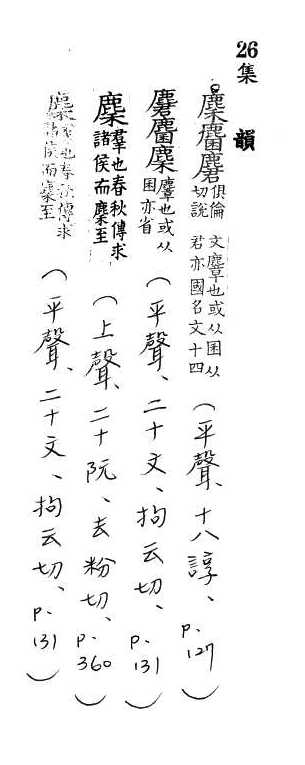 26集韻
麇麏麕俱倫切說文麞也或从囷从君亦國名文十四(平聲、十八諄、P.127)
麕麏麇麞也或从囷亦省(平聲、二十文、拘云切、P.131)
麇羣也春秋傳求諸侯而麇至(上聲、二十阮、去粉切、P.360)
麇羣也春秋傳求諸侯而麇至(平聲、二十文、拘云切、P.131)